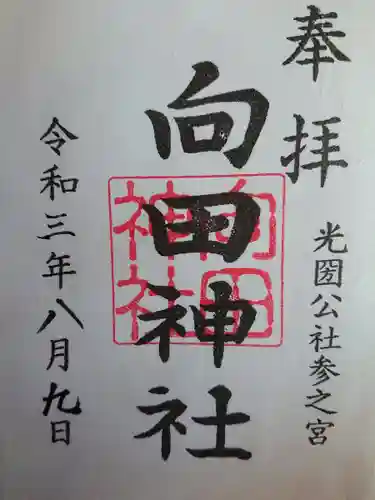 奉拝
光圀公社参之宮
向田神社
向田
神社
令和三年八月九日